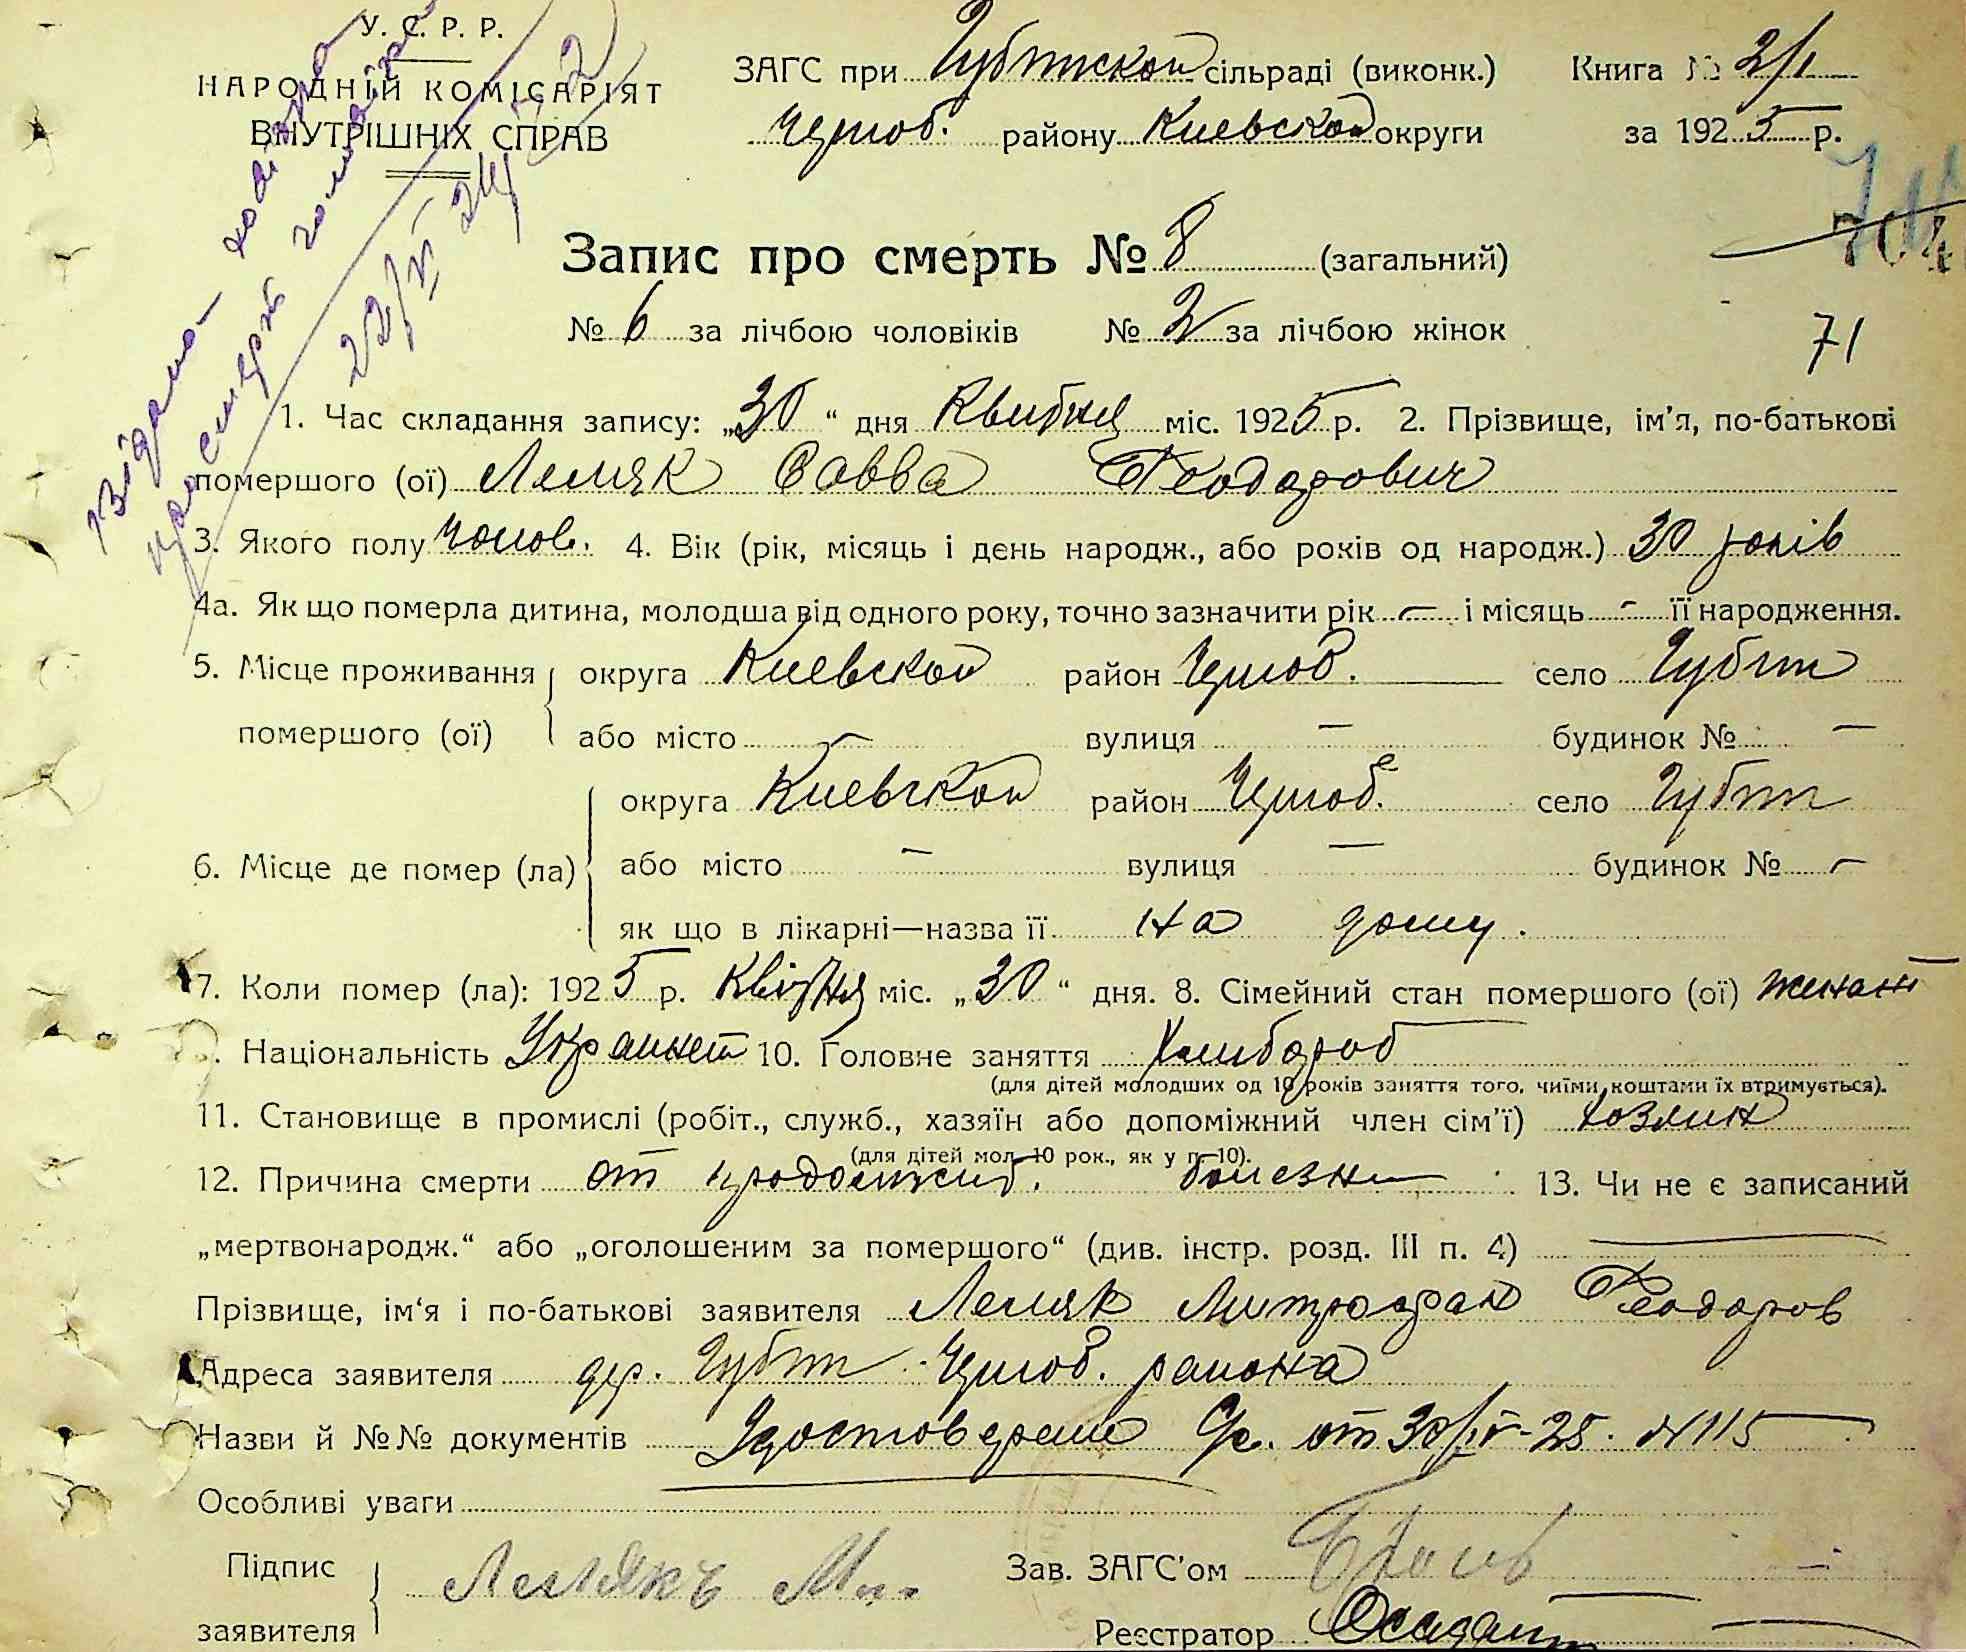 У. С. Р. Р.
НАРОДНІЙ КОМІСАРІЯТ
ВНУТРІШНІХ СПРАВ
ЗАГС при Губинской сільраді (виконк.)
Черноб. району Киевской округи
Книга № 2/1
за 1925 р.
704
71
Запис про смерть № 8 (загальний)
№ 6 за лічбою чоловіків № 2 за лічбою жінок
1. Час складання запису: „30“ дня Квитня міс. 1925 р. 2. Прізвище, ім'я, по-батькові
помершого (ої) Лемяк Савва Феодорович
3. Якого полу чолов. 4. Вік (рік, місяць і день народж., або років од народж.) 30 років
4а. Як що померла дитина, молодша від одного року, точно зазначити рік — і місяць - її народження.
5. Місце проживання помершого (ої) округа Киевской район Черноб. село Губин
або місто — вулиця — будинок № —
6. Місце де помер (ла) округа Киевской район Черноб. село Губин
або місто — вулиця — будинок № —
як що в лікарні—назва її на дому.
7. Коли помер (ла): 1925 р. Квітня міс. „30“ дня. 8. Сімейний стан помершого (ої) женат
. Національність Украинец 10. Головне заняття Хлибороб
(для дітей молодших од 10 років заняття того, чиїми коштами їх втримується).
11. Становище в промислі (робіт., служб., хазяїн або допоміжний член сім'ї) хозяин
(для дітей мол. 10 рок., як у п. 10).
12. Причина смерти от продолжит. болезни 13. Чи не є записаний
„мертвонародж.“ або „оголошеним за помершого“ (див. інстр. розд. III п. 4) —
Прізвище, ім'я і по-батькові заявителя Лемяк Митрофан Феодоров
Адреса заявителя дер. Губин Черноб. района
Назви й №№ документів Удостоверение от 30/IV-25. № 115
Особливі уваги
Підпис заявителя Лемякъ М. Зав. ЗАГС'ом
Реєстратор